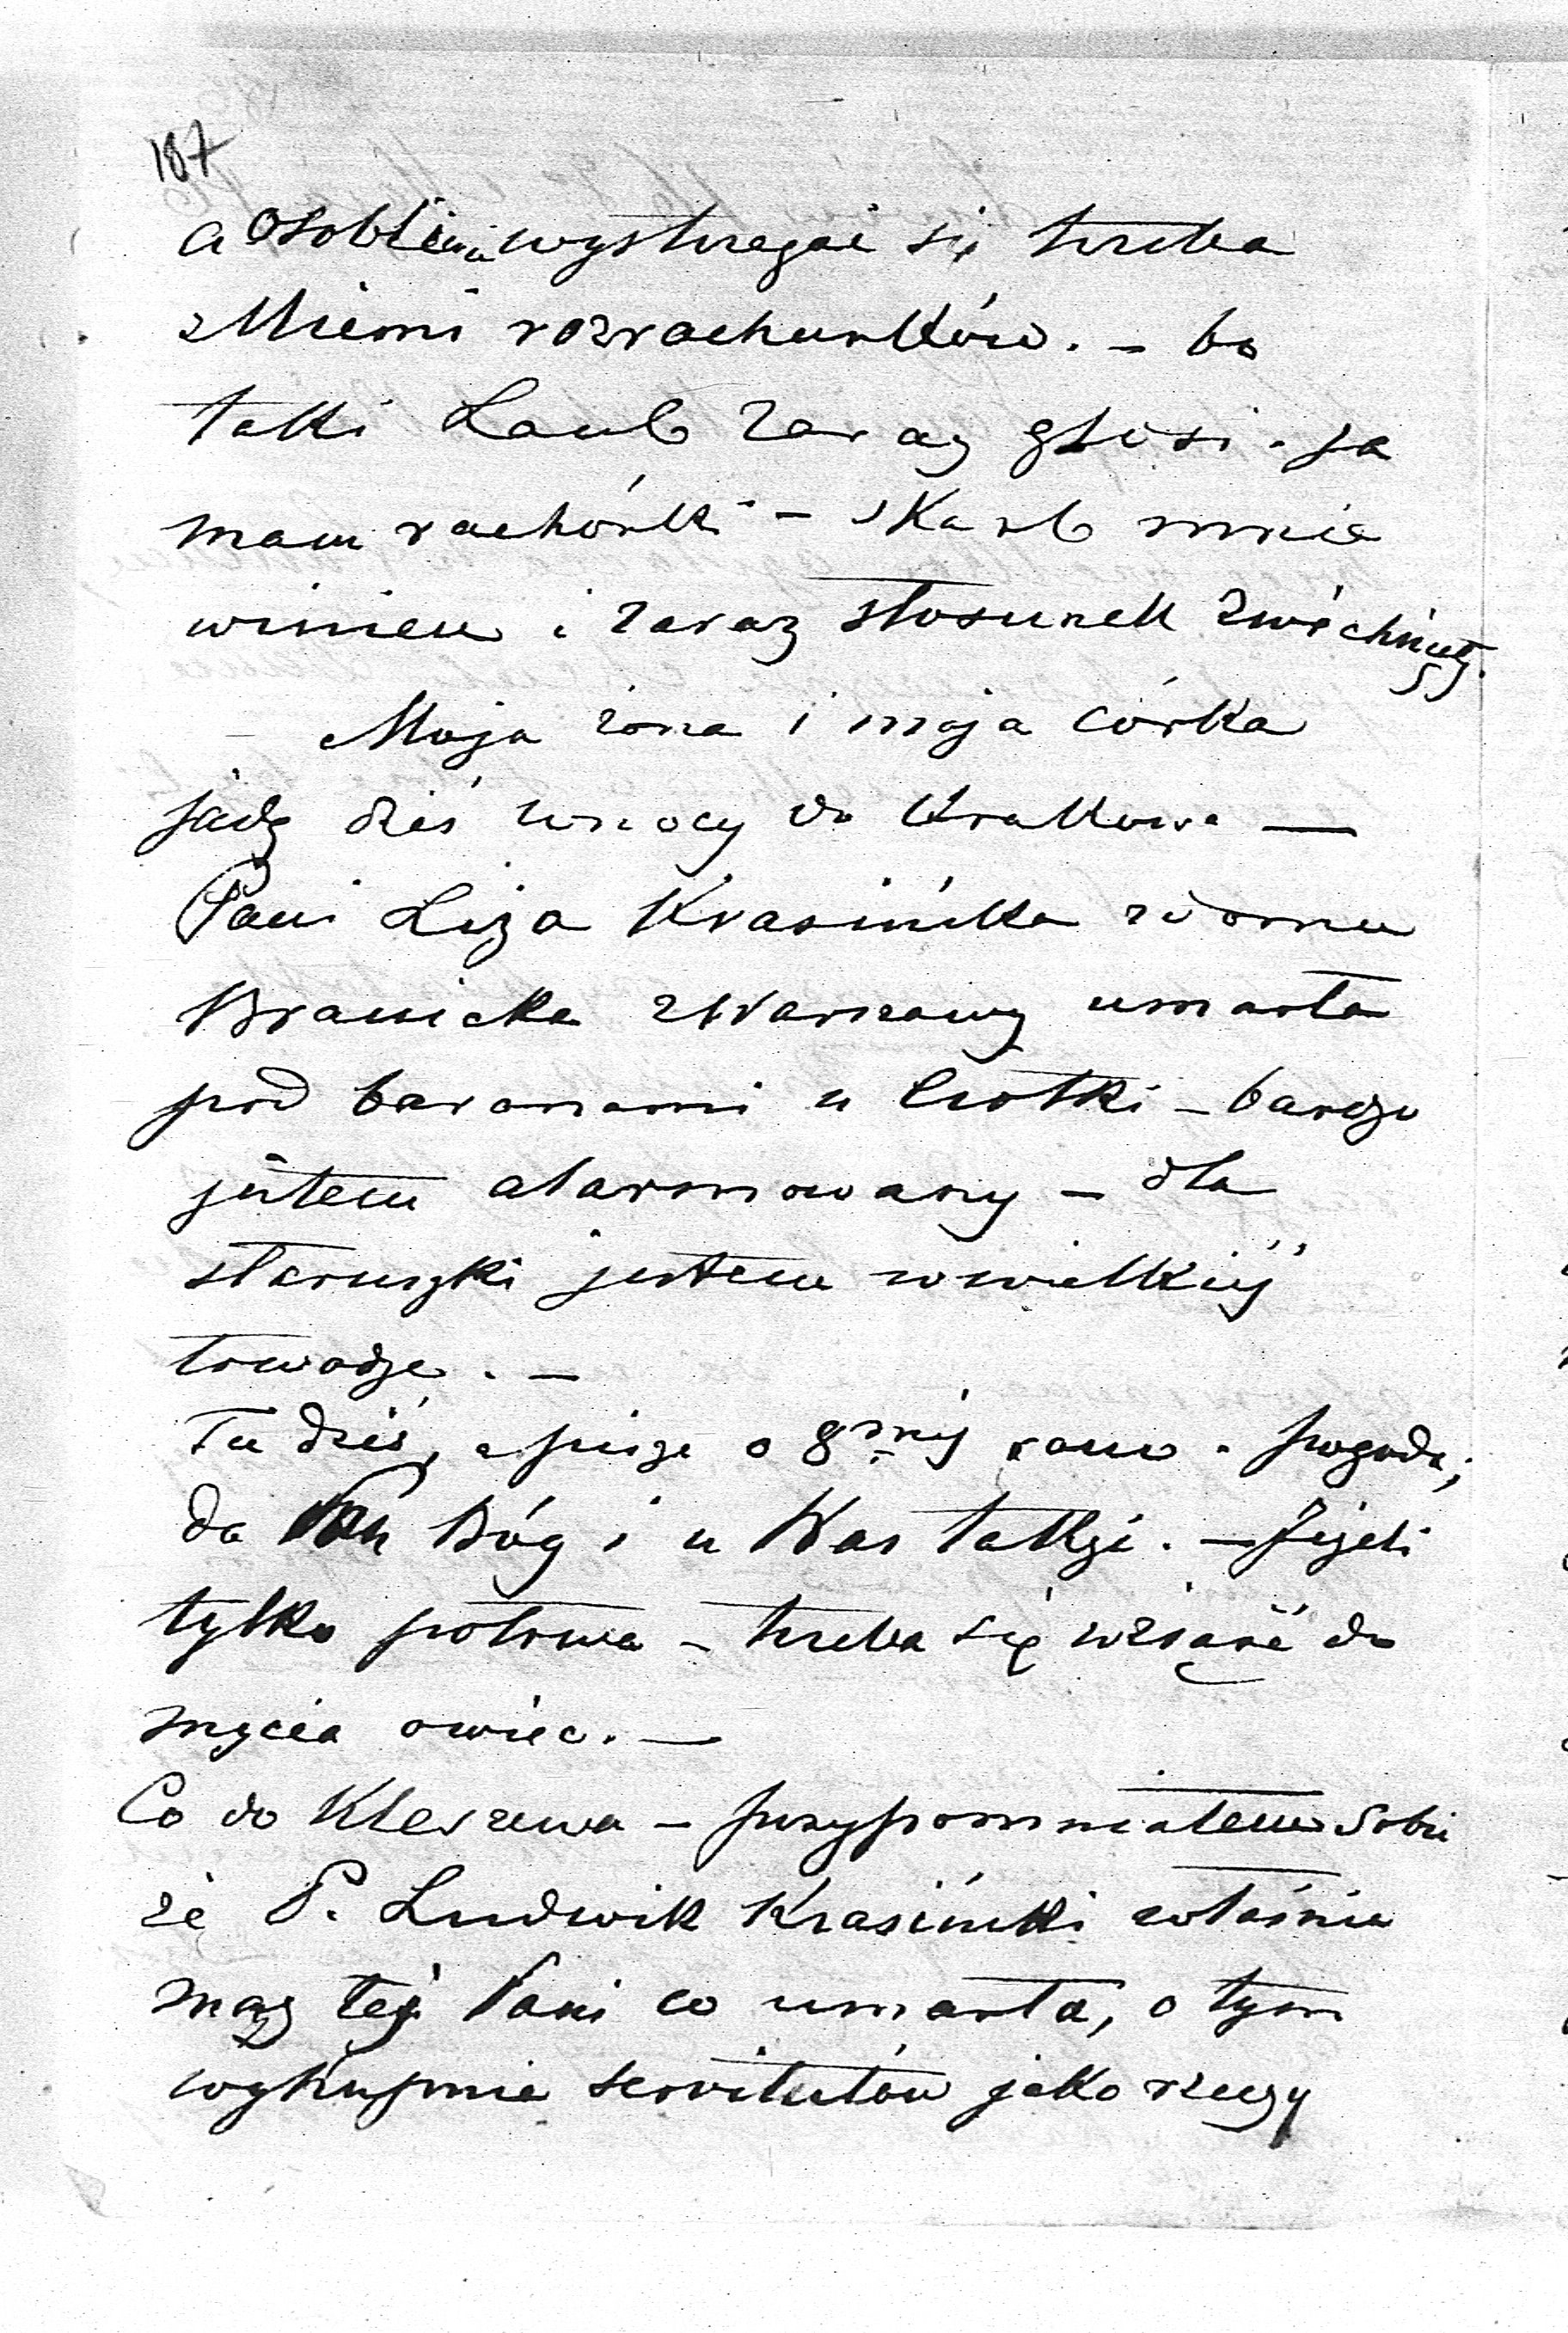 187
a osobliwie wystrzegać się trzeba
z Niemi rozrachunków. – bo
taki Laub zaraz głosi – ja
mam rachónki – skarb mnie
winien i zaraz stosunek zwichnięty.
– Moja żona i moja córka
jadą dziś w nocy do Krakowa —
Pani Liza Krasińska z domu
Branicka z Warszawy umarła
pod baranami u Ciotki – bardzo
jestem alarmowany – dla
staruszki jestem w wielkiéj
trwodze. –
Tu dziś, a piszę o 8méj rano – pogoda,
da Pan Bóg i u Was także. – Jeżeli
tylko potrwa – trzeba się wziąść do
mycia owiec. —
Co do Kleszewa – przypomniałem sobie
że P. Ludwik Krasiński właśnie
mąż téj Pani co umarła, o tym
wykupnie serwitutów jako rzeczy